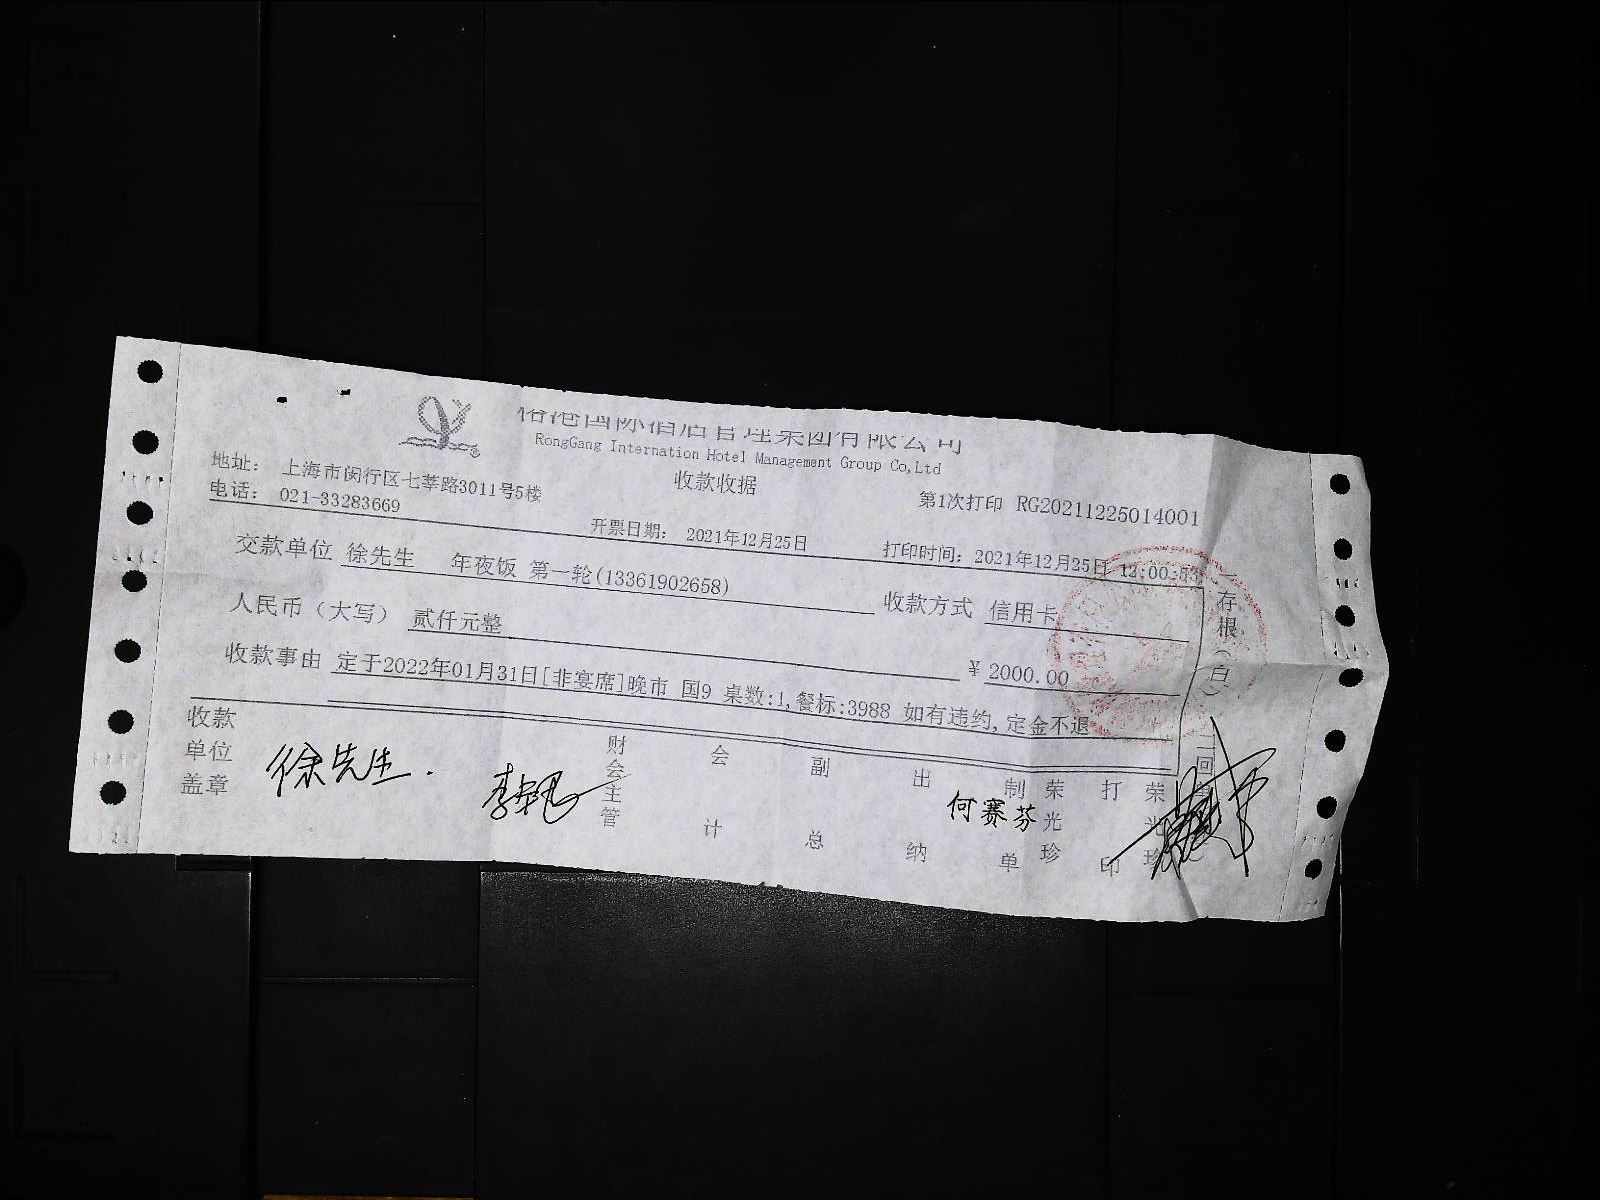 港国际酒店管理集团有限公司
RongGang Internation Hotel Management Group Co,Ltd
收款收据
地址： 上海市闵行区七莘路3011号5楼
电话： 021-33283669
第1次打印 RG20211225014001
开票日期： 2021年12月25日
打印时间：2021年12月25日 12:00:53
交款单位 徐先生 年夜饭 第一轮(13361902658)
收款方式 信用卡
人民币（大写） 贰仟元整
￥ 2000.00
收款事由 定于2022年01月31日[非宴席]晚市 国9 桌数:1,餐标:3988 如有违约,定金不退
存根（白
收款单位盖章
徐先生.
财会主管
会计
副总
出纳
制单
何赛芬
荣光珍
打印
荣光珍